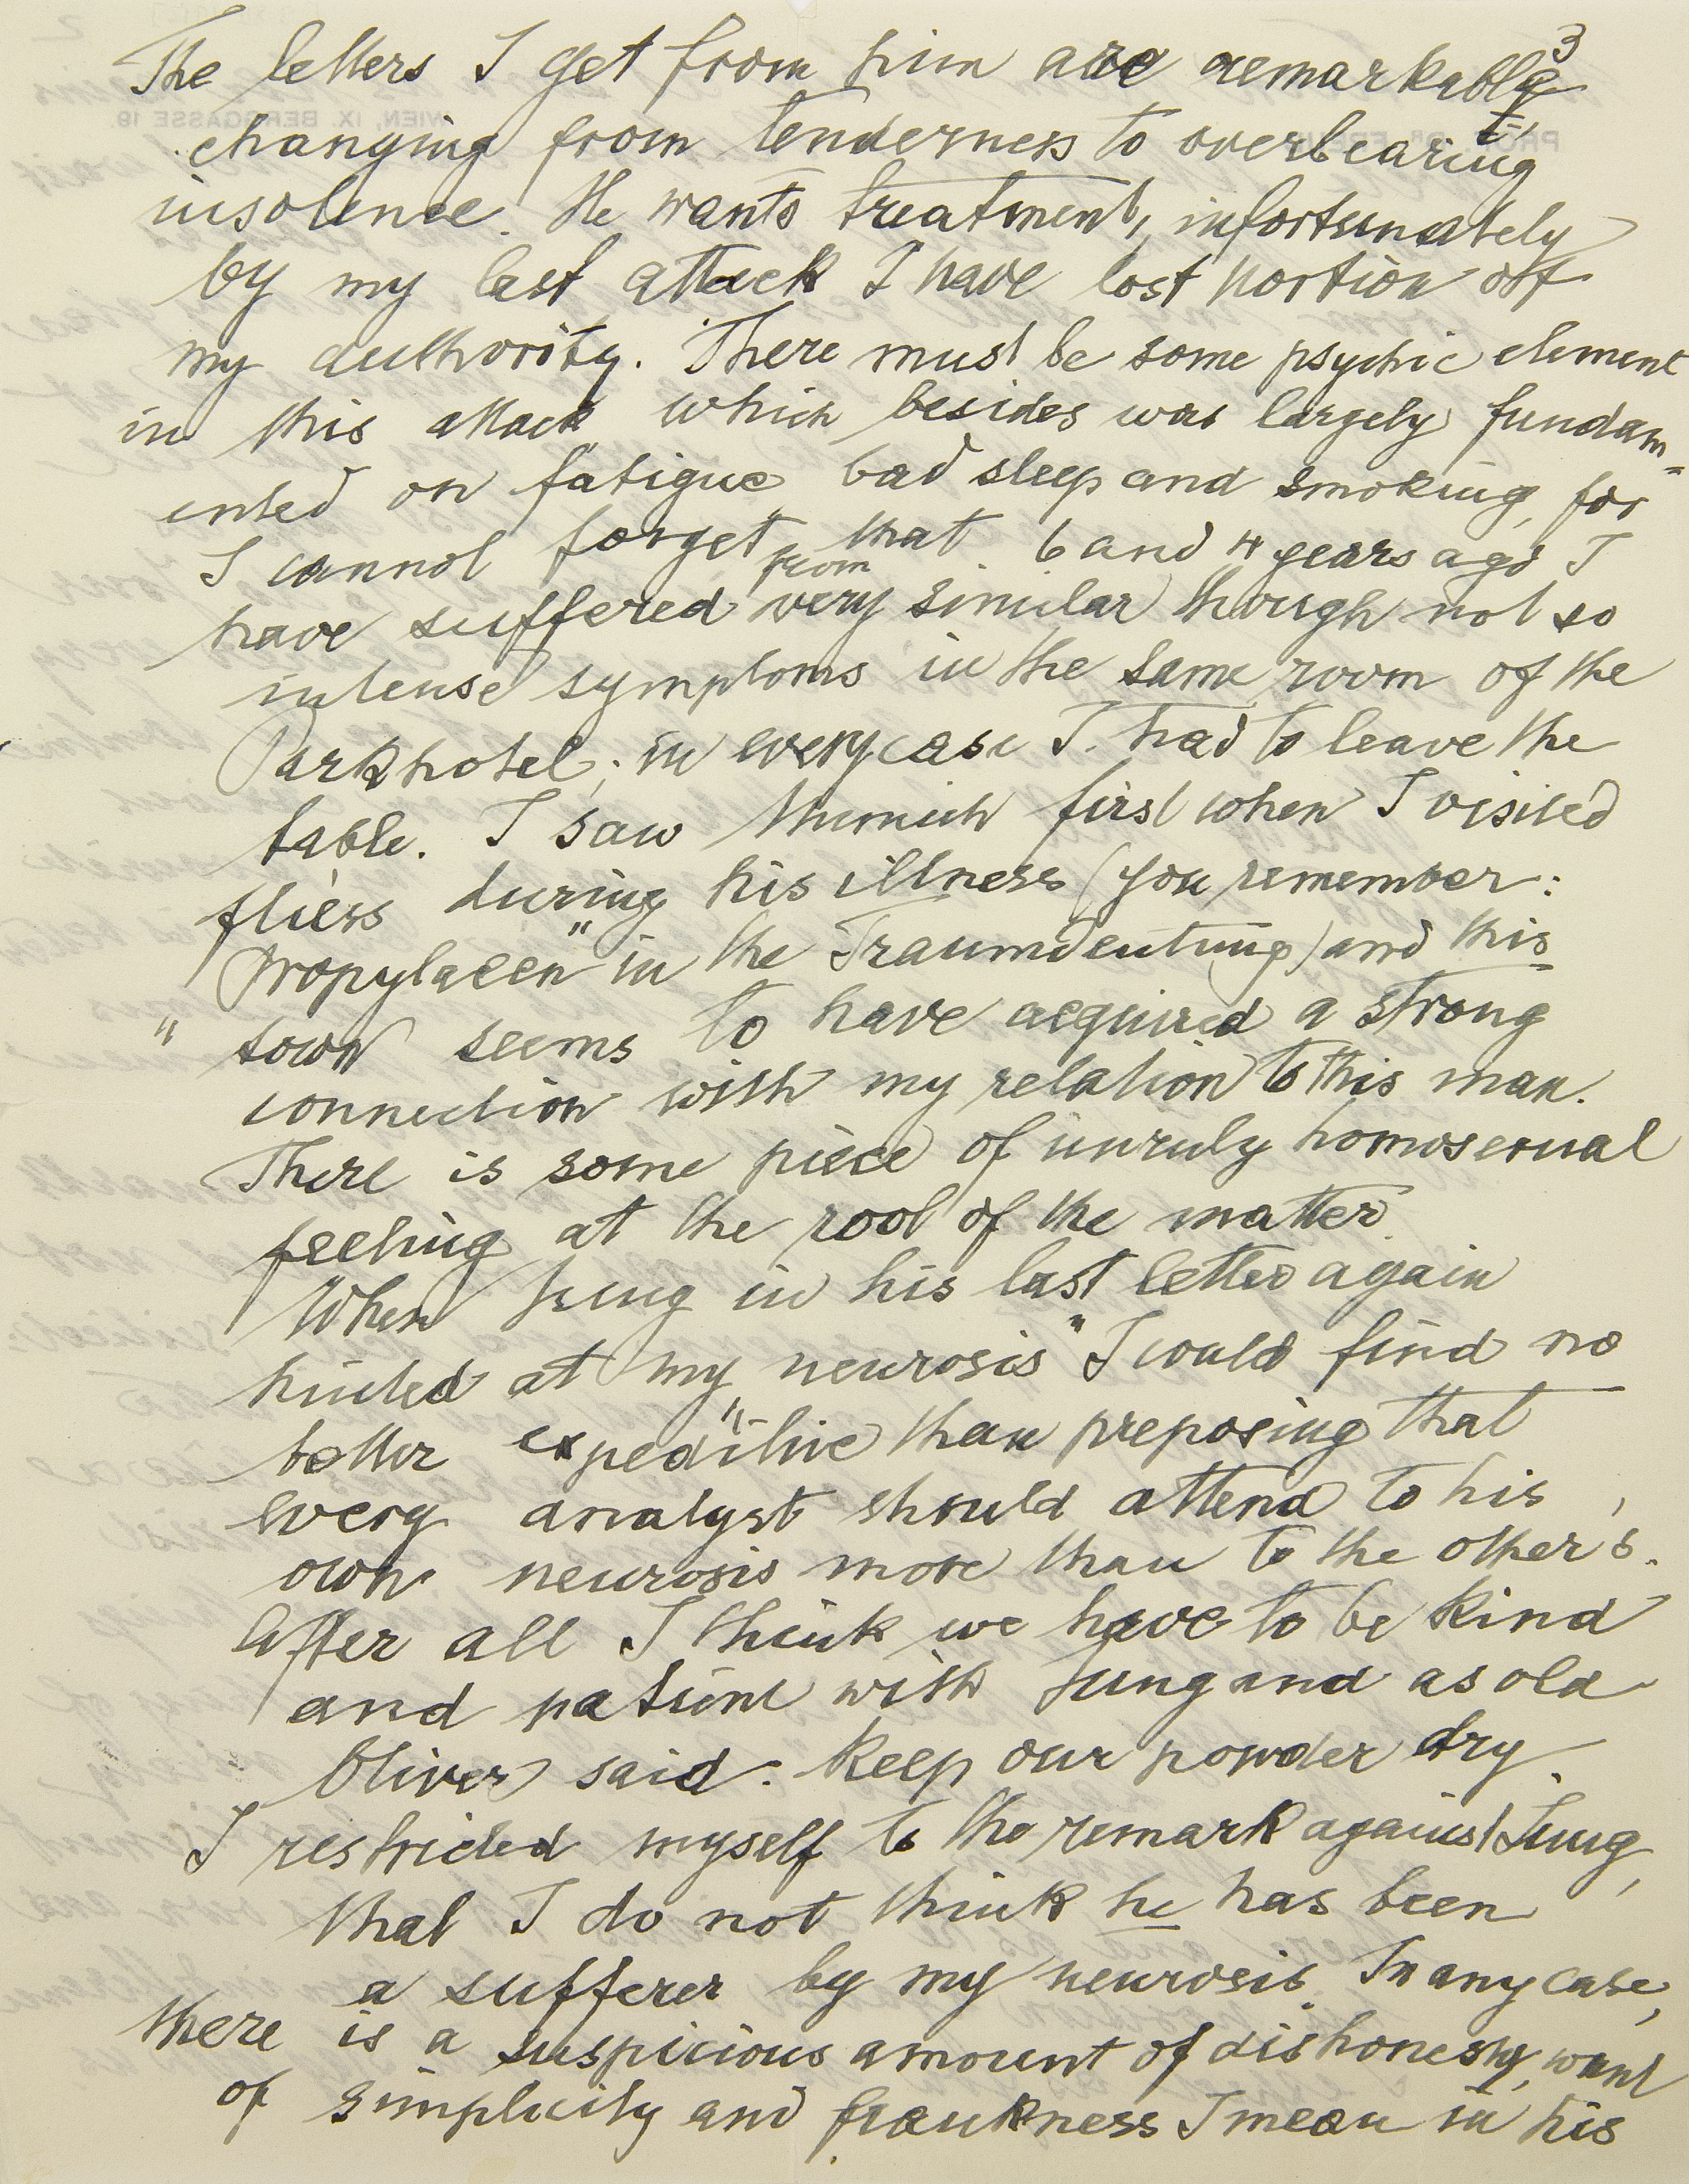 3
The letters I get from him are remarkable,
changing from tenderness to overbearing
insolence. He wants treatment, infortunately
by my last attack I have lost portion off
my authority. There must be some psychic element
in this attack which besides was largely fundam-
ented on fatigue bad sleep and smoking, for
I cannot forget, that 6 and 4 years ago I
have suffered from very similar though not so
intense symptoms in the same room of the
Parkhotel; in every case I had to leave the
table. I saw Munich first when I visited
Fliess during his illness (you remember:
"Propylaeen" in the Traumdeutung) and this
town seems to have acquired a strong
connection with my relation to this man.
There is some piece of unruly homosexual
feeling at the root of the matter.
When Jung in his last letter again
hinted at my "neurosis" I could find no
better expeditive than preposing that
every analyst should attend to his
own neurosis more than to the other's.
After all I think we have to be kind
and patient with Jung and as old
Oliver said: Keep our powder dry.
I restricted myself to the remark against Jung,
that I do not think he has been
a sufferer by my neurosis. In any case,
there is a suspicious amount of dishonesty, want
of simplicity and frankness I mean in his
WIEN, IX. BERGGASSE 19.